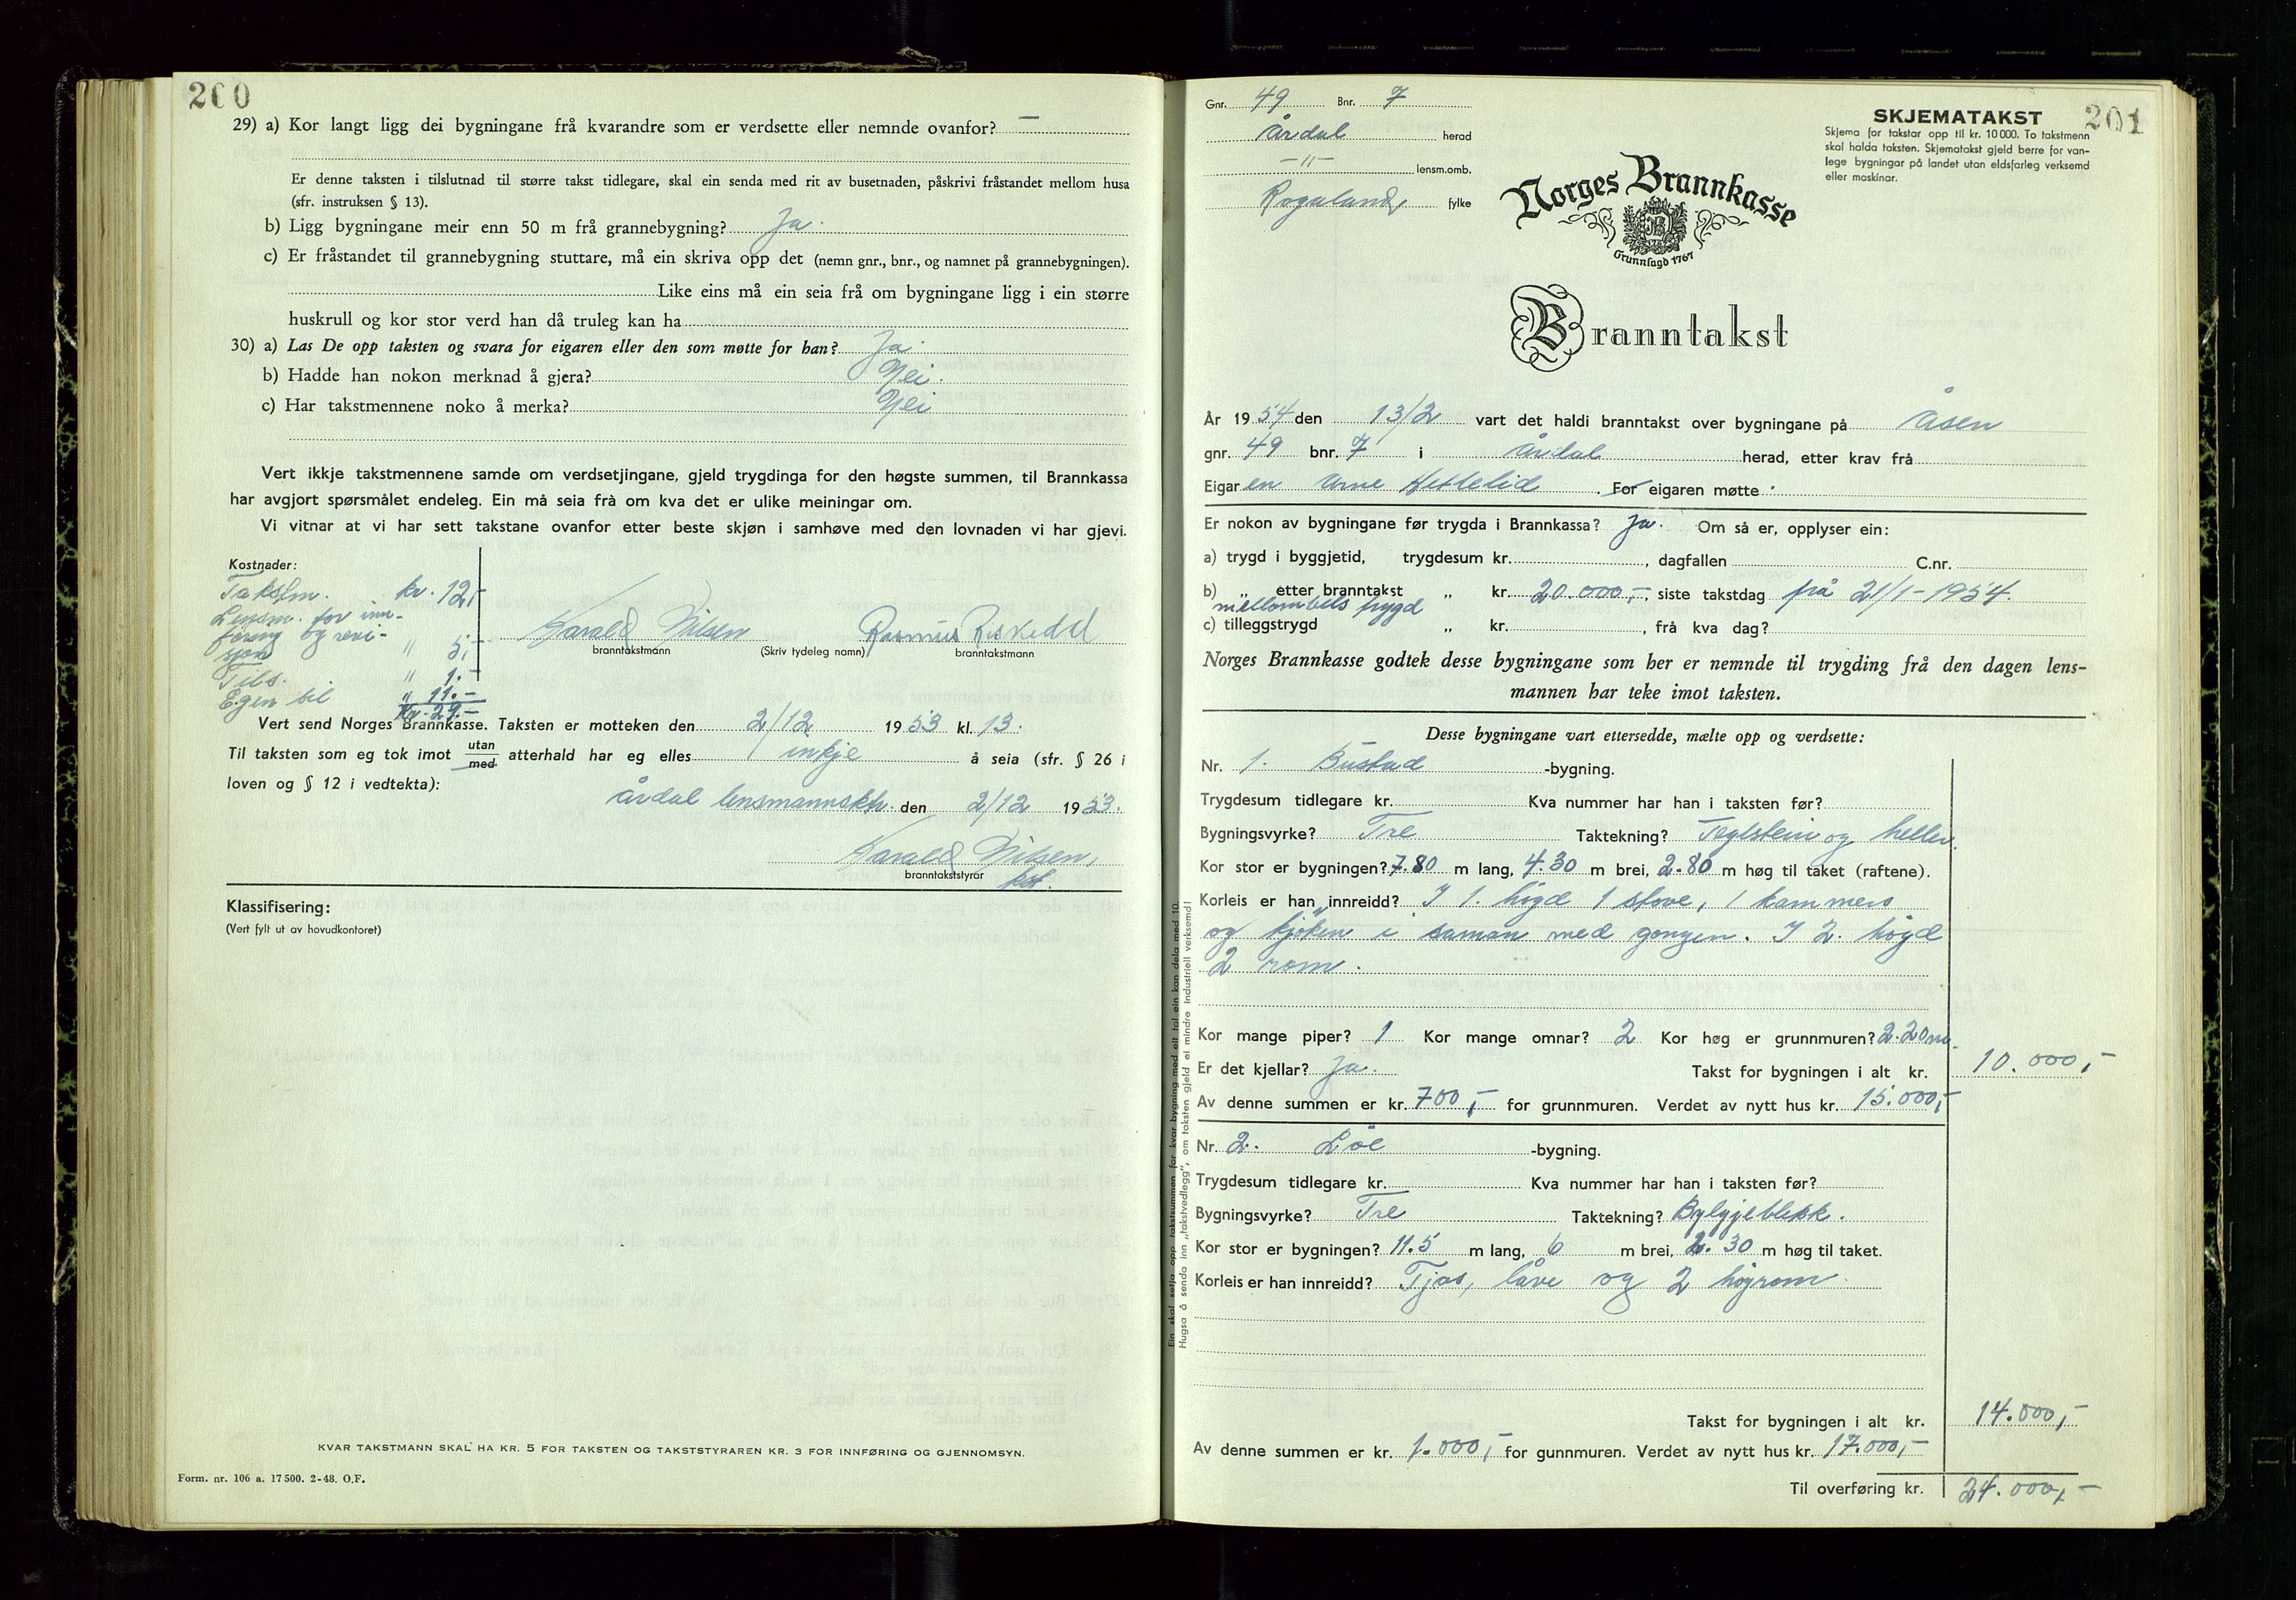 200
29) a) Kor langt ligg dei bygningane frå kvarandre som er verdsette eller nemnde ovanfor? —
Er denne taksten i tilslutnad til større takst tidlegare, skal ein senda med rit av busetnaden, påskrivi fråstandet mellom husa
(sfr. instruksen § 13).
b) Ligg bygningane meir enn 50 m frå grannebygning? Ja.
c) Er fråstandet til grannebygning stuttare, må ein skriva opp det (nemn gnr., bnr., og namnet på grannebygningen).
Like eins må ein seia frå om bygningane ligg i ein større
huskrull og kor stor verd han då truleg kan ha
30) a) Las De opp taksten og svara for eigaren eller den som møtte for han? Ja.
b) Hadde han nokon merknad å gjera? Nei.
c) Har takstmennene noko å merka? Nei
Vert ikkje takstmennene samde om verdsetjingane, gjeld trygdinga for den høgste summen, til Brannkassa
har avgjort spørsmålet endeleg. Ein må seia frà om kva det er ulike meiningar om.
Vi vitnar at vi har sett takstane ovanfor etter beste skjøn i samhøve med den lovnaden vi har gjevi.
Kostnader:
Takstm. kr. 12,-
Lensm. for inn-
føring og revi-
sjon " 5,-
Tils. " 1.-
Egen bil " 11.-
Kr. 29.-
Harald Nilsen Rasmus Riskedal
branntakstmann (Skriv tydeleg namn) branntakstmann
Vert send Norges Brannkasse. Taksten er motteken den 2/12 1953 kl. 13.
Til taksten som eg tok imot utan med atterhald har eg elles inkje å seia (sfr. § 26 i
loven og § 12 i vedtekta):
Årdal lensmannsktr. den 2/12 1953.
Harald Nilsen,
branntakststyrar kst.
Klassifisering:
(Vert fylt ut av hovudkontoret)
KVAR TAKSTMANN SKAL HA KR. 5 FOR TAKSTEN OG TAKSTSTYRAREN KR. 3 FOR INNFØRING OG GJENNOMSYN.
Form. nr. 106 a. 17 500. 2-48. O.F.
Gnr. 49 Bnr. 7
Årdal herad
—"— lensm.omb.
Rogaland, fylke
SKJEMATAKST 201
Skjema for takstar opp til kr. 10 000. To takstmenn
skal halda taksten. Skjematakst gjeld berre for van-
lege bygningar på landet utan eldsfarleg verksemd
eller maskinar.
Norges Brannkasse
Grunnlagd 1767
Branntakst
År 1954 den 13/2 vart det haldi branntakst over bygningane på Åsen
gnr. 49 bnr. 7 i Årdal herad, etter krav frå
Eigaren Arne Hettelid. For eigaren møtte .
Er nokon av bygningane før trygda i Brannkassa? Ja. Om så er, opplyser ein:
a) trygd i byggjetid, trygdesum kr. , dagfallen C.nr.
b) „ etter branntakst „ kr. 20.000,-, siste takstdag frå 21/1-1954.
mellombels trygd
c) tilleggstrygd „ kr. , frå kva dag?
Norges Brannkasse godtek desse bygningane som her er nemnde til trygding frå den dagen lens-
mannen har teke imot taksten.
Desse bygningane vart ettersedde, mælte opp og verdsette:
Nr. 1. Bustad -bygning.
Trygdesum tidlegare kr. Kva nummer har han i taksten før?
Bygningsvyrke? Tre Taktekning? Teglstein og heller.
Kor stor er bygningen? 7.80 m lang, 4.30 m brei, 2.80 m høg til taket (raftene).
Korleis er han innreidd? I 1. høgd 1 stove, 1 kammers
og kjøken i saman med gongen. I 2. høgd
2 rom.
Kor mange piper? 1 Kor mange omnar? 2 Kor høg er grunnmuren? 2.20m.
Er det kjellar? Ja. Takst for bygningen i alt kr. 10.000,-
Av denne summen er kr. 700,- for grunnmuren. Verdet av nytt hus kr. 15.000,-
Nr. 2. Löe -bygning.
Trygdesum tidlegare kr. Kva nummer har han i taksten før?
Bygningsvyrke? Tre Taktekning? Bylgjeblikk.
Kor stor er bygningen? 11.5 m lang, 6 m brei, 2.30 m høg til taket.
Korleis er han innreidd? Fjøs, låve og 2 høyrom.
Takst for bygningen i alt kr. 14.000,-
Av denne summen er kr. 1.000,- for gunnmuren. Verdet av nytt hus kr. 17.000,-
Til overføring kr. 24.000,-
Ein skal setja opp takstsummen for kvar bygning med eit tal ein kan dela med 10.
Hugsa å senda inn „takstvedlegg", om taksten gjeld ei mindre industriell verksemd!